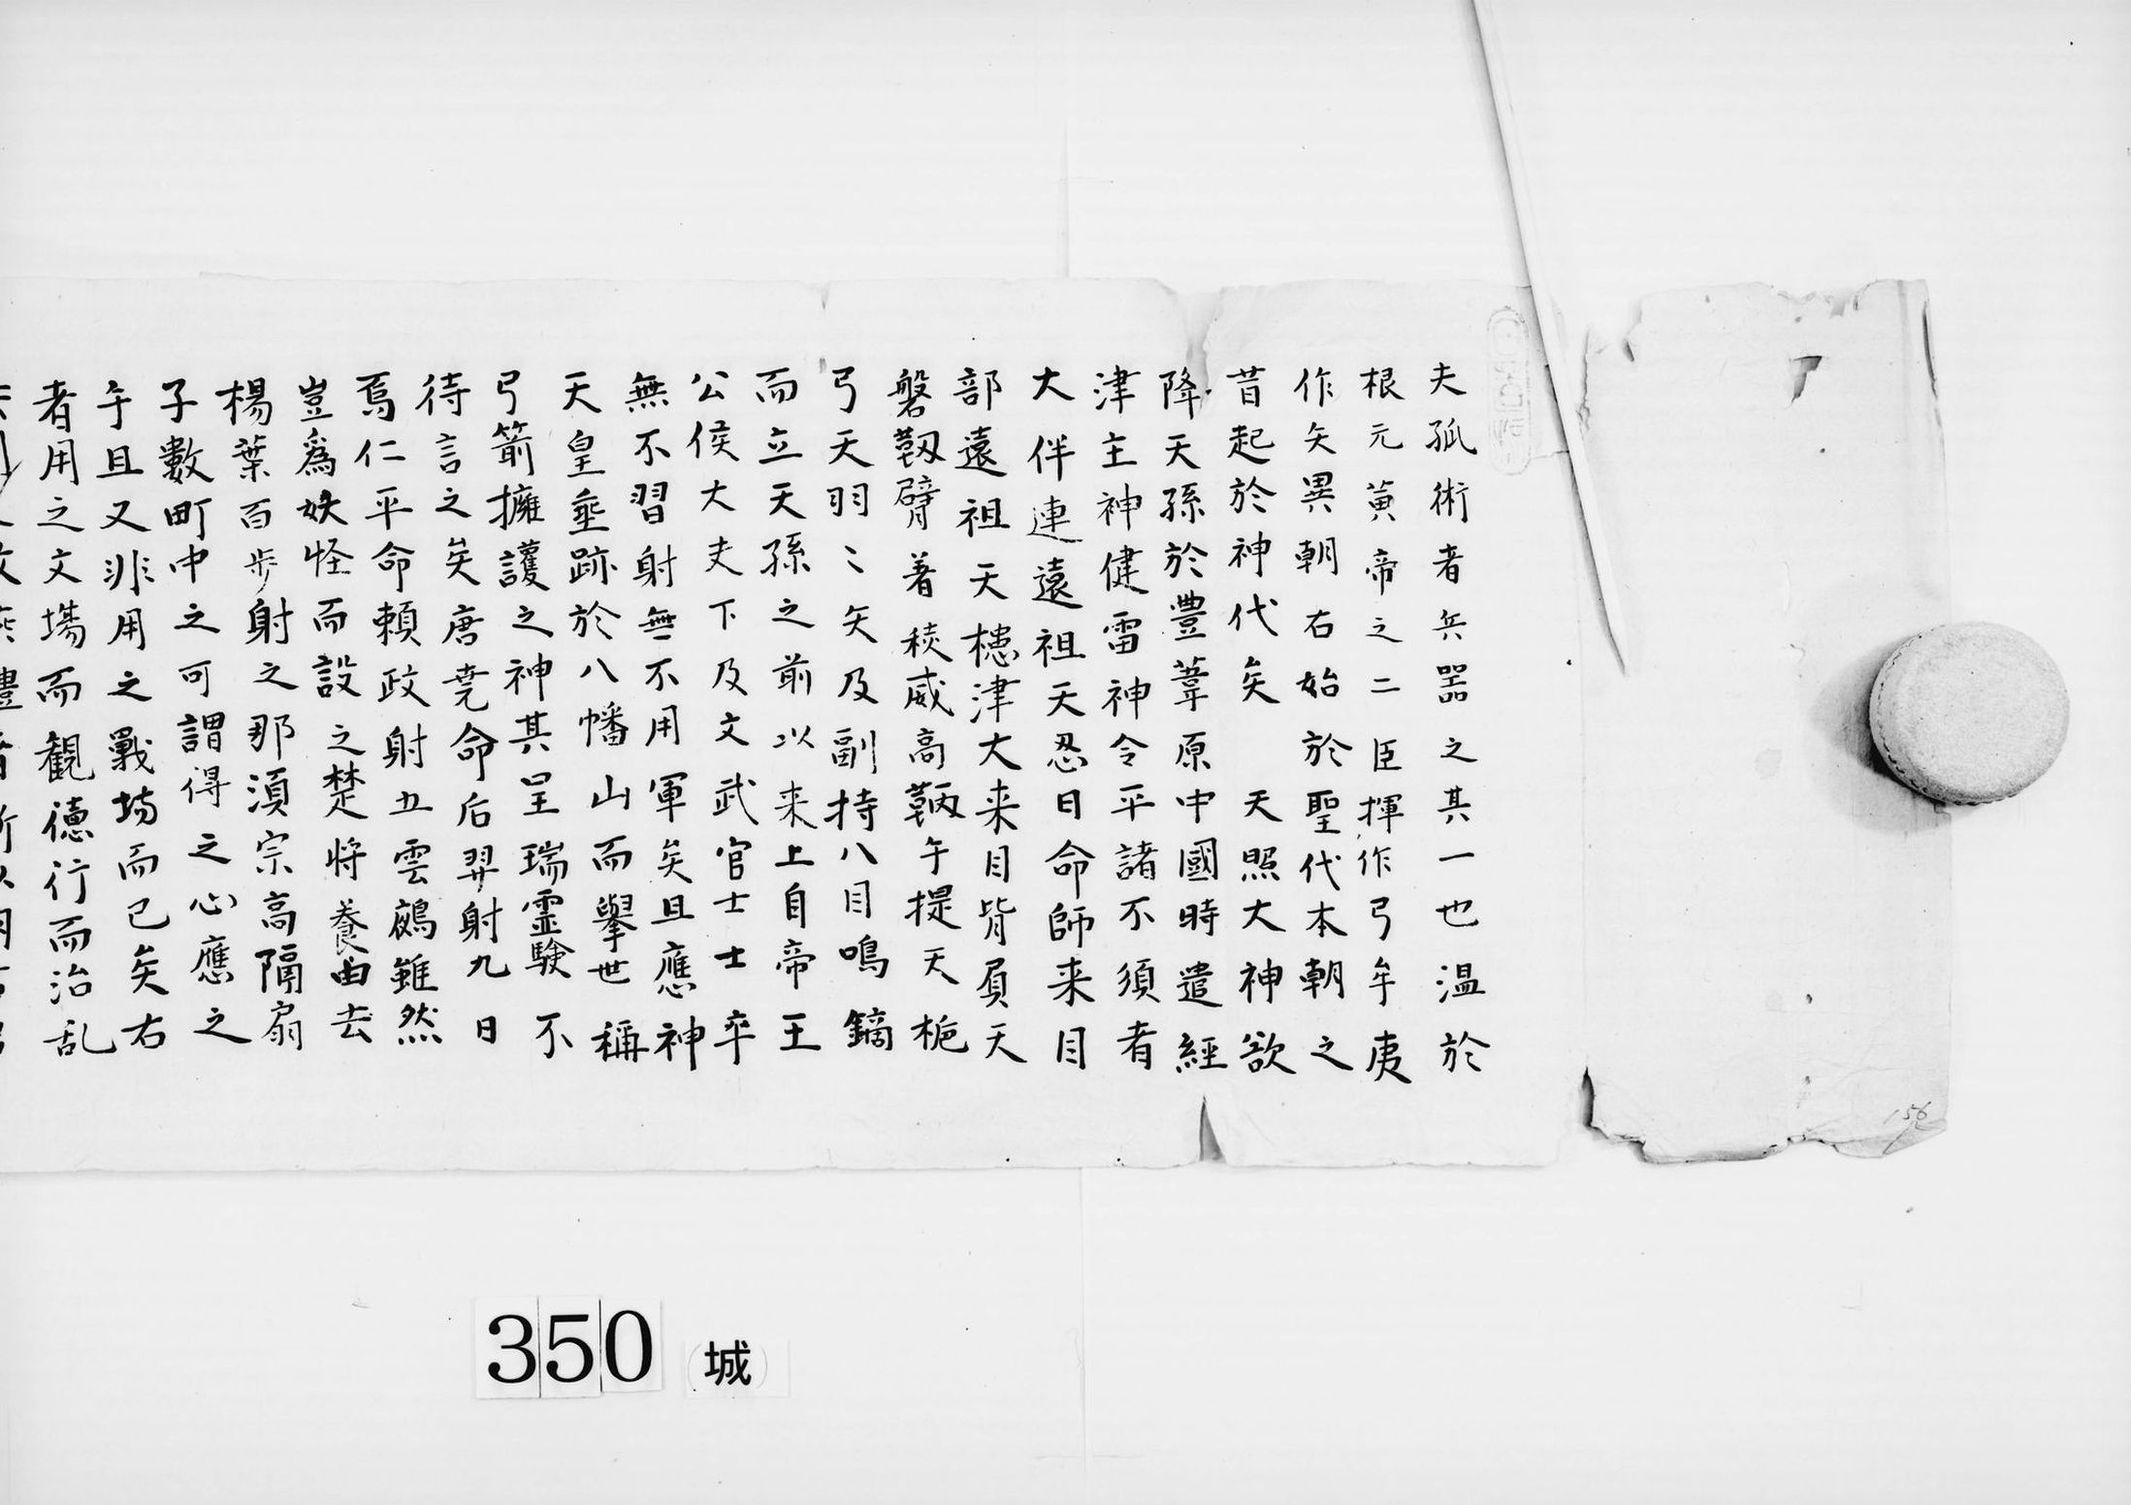 夫弧術者兵器之其一也温於
根元黄帝之二臣揮作弓牟夷
作矢異朝右始於聖代本朝之
昔起於神代矣 天照大神欲
降天孫於豊葦原中國時遣経
津主神健雷神令平諸不須者
大伴連遠祖天忍日命師来目
部遠祖天槵津大来目背負天
磐靫臂著稜威高鞆手提天梔
弓天羽〻矢及副持八目鳴鏑
而立天孫之前以来上自帝王
公侯大夫下及文武官士士卒
無不習射無不用軍矣且應神
天皇垂跡於八幡山而擧世稱
弓箭擁護之神其呈瑞霊験不
待言之矣唐尭命后羿射九日
焉仁平命頼政射五雲鵺雖然
豈爲妖怪而設之楚将養由去
楊葉百歩射之那湏宗高隔扇
子數町中之可謂得之心應之
手且又非用之戰場而已矣右
者用之文場而観徳行而治乱